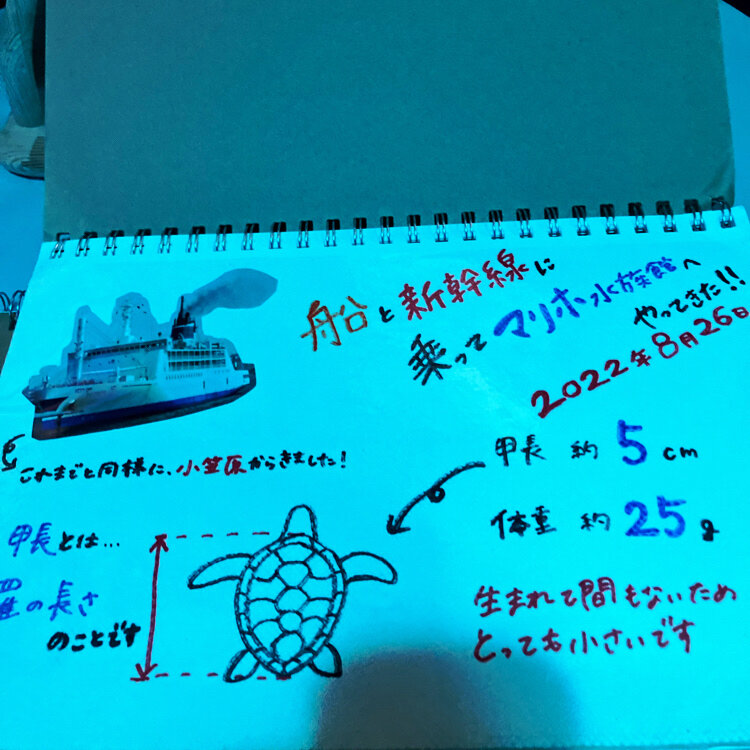 船と新幹線に
乗ってマリホ水族館へ
やってきた!!
2022年8月26日
これまでと同様に、小笠原からきました!
甲長 約 5 cm
体重 約 25 g
甲長とは…
の長さ
のことです
生まれて間もないため
とっても小さいです